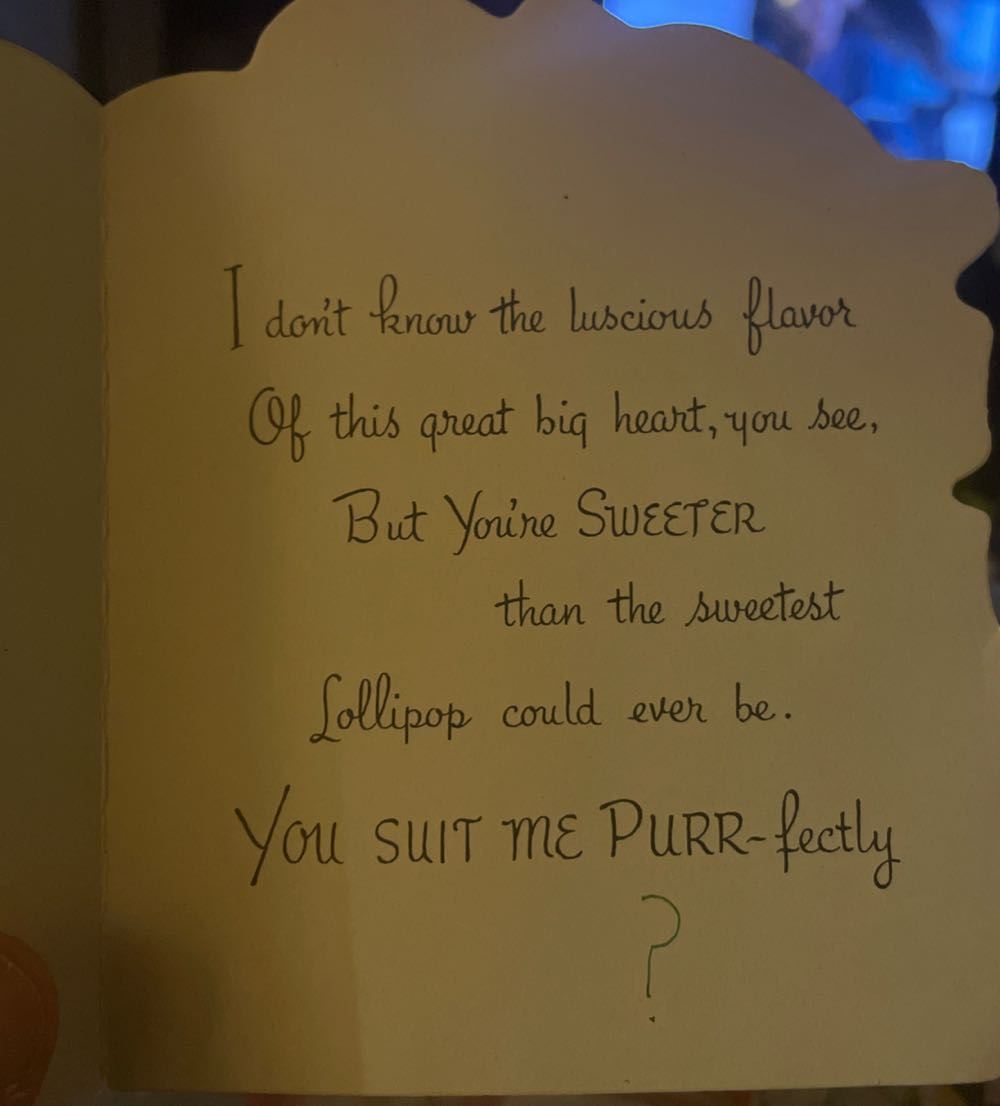 I don't know the luscious flavor
Of this great big heart, you see,
But You're SWEETER
than the sweetest
Lollipop could ever be.
YOU SUIT ME PURR-fectly
?